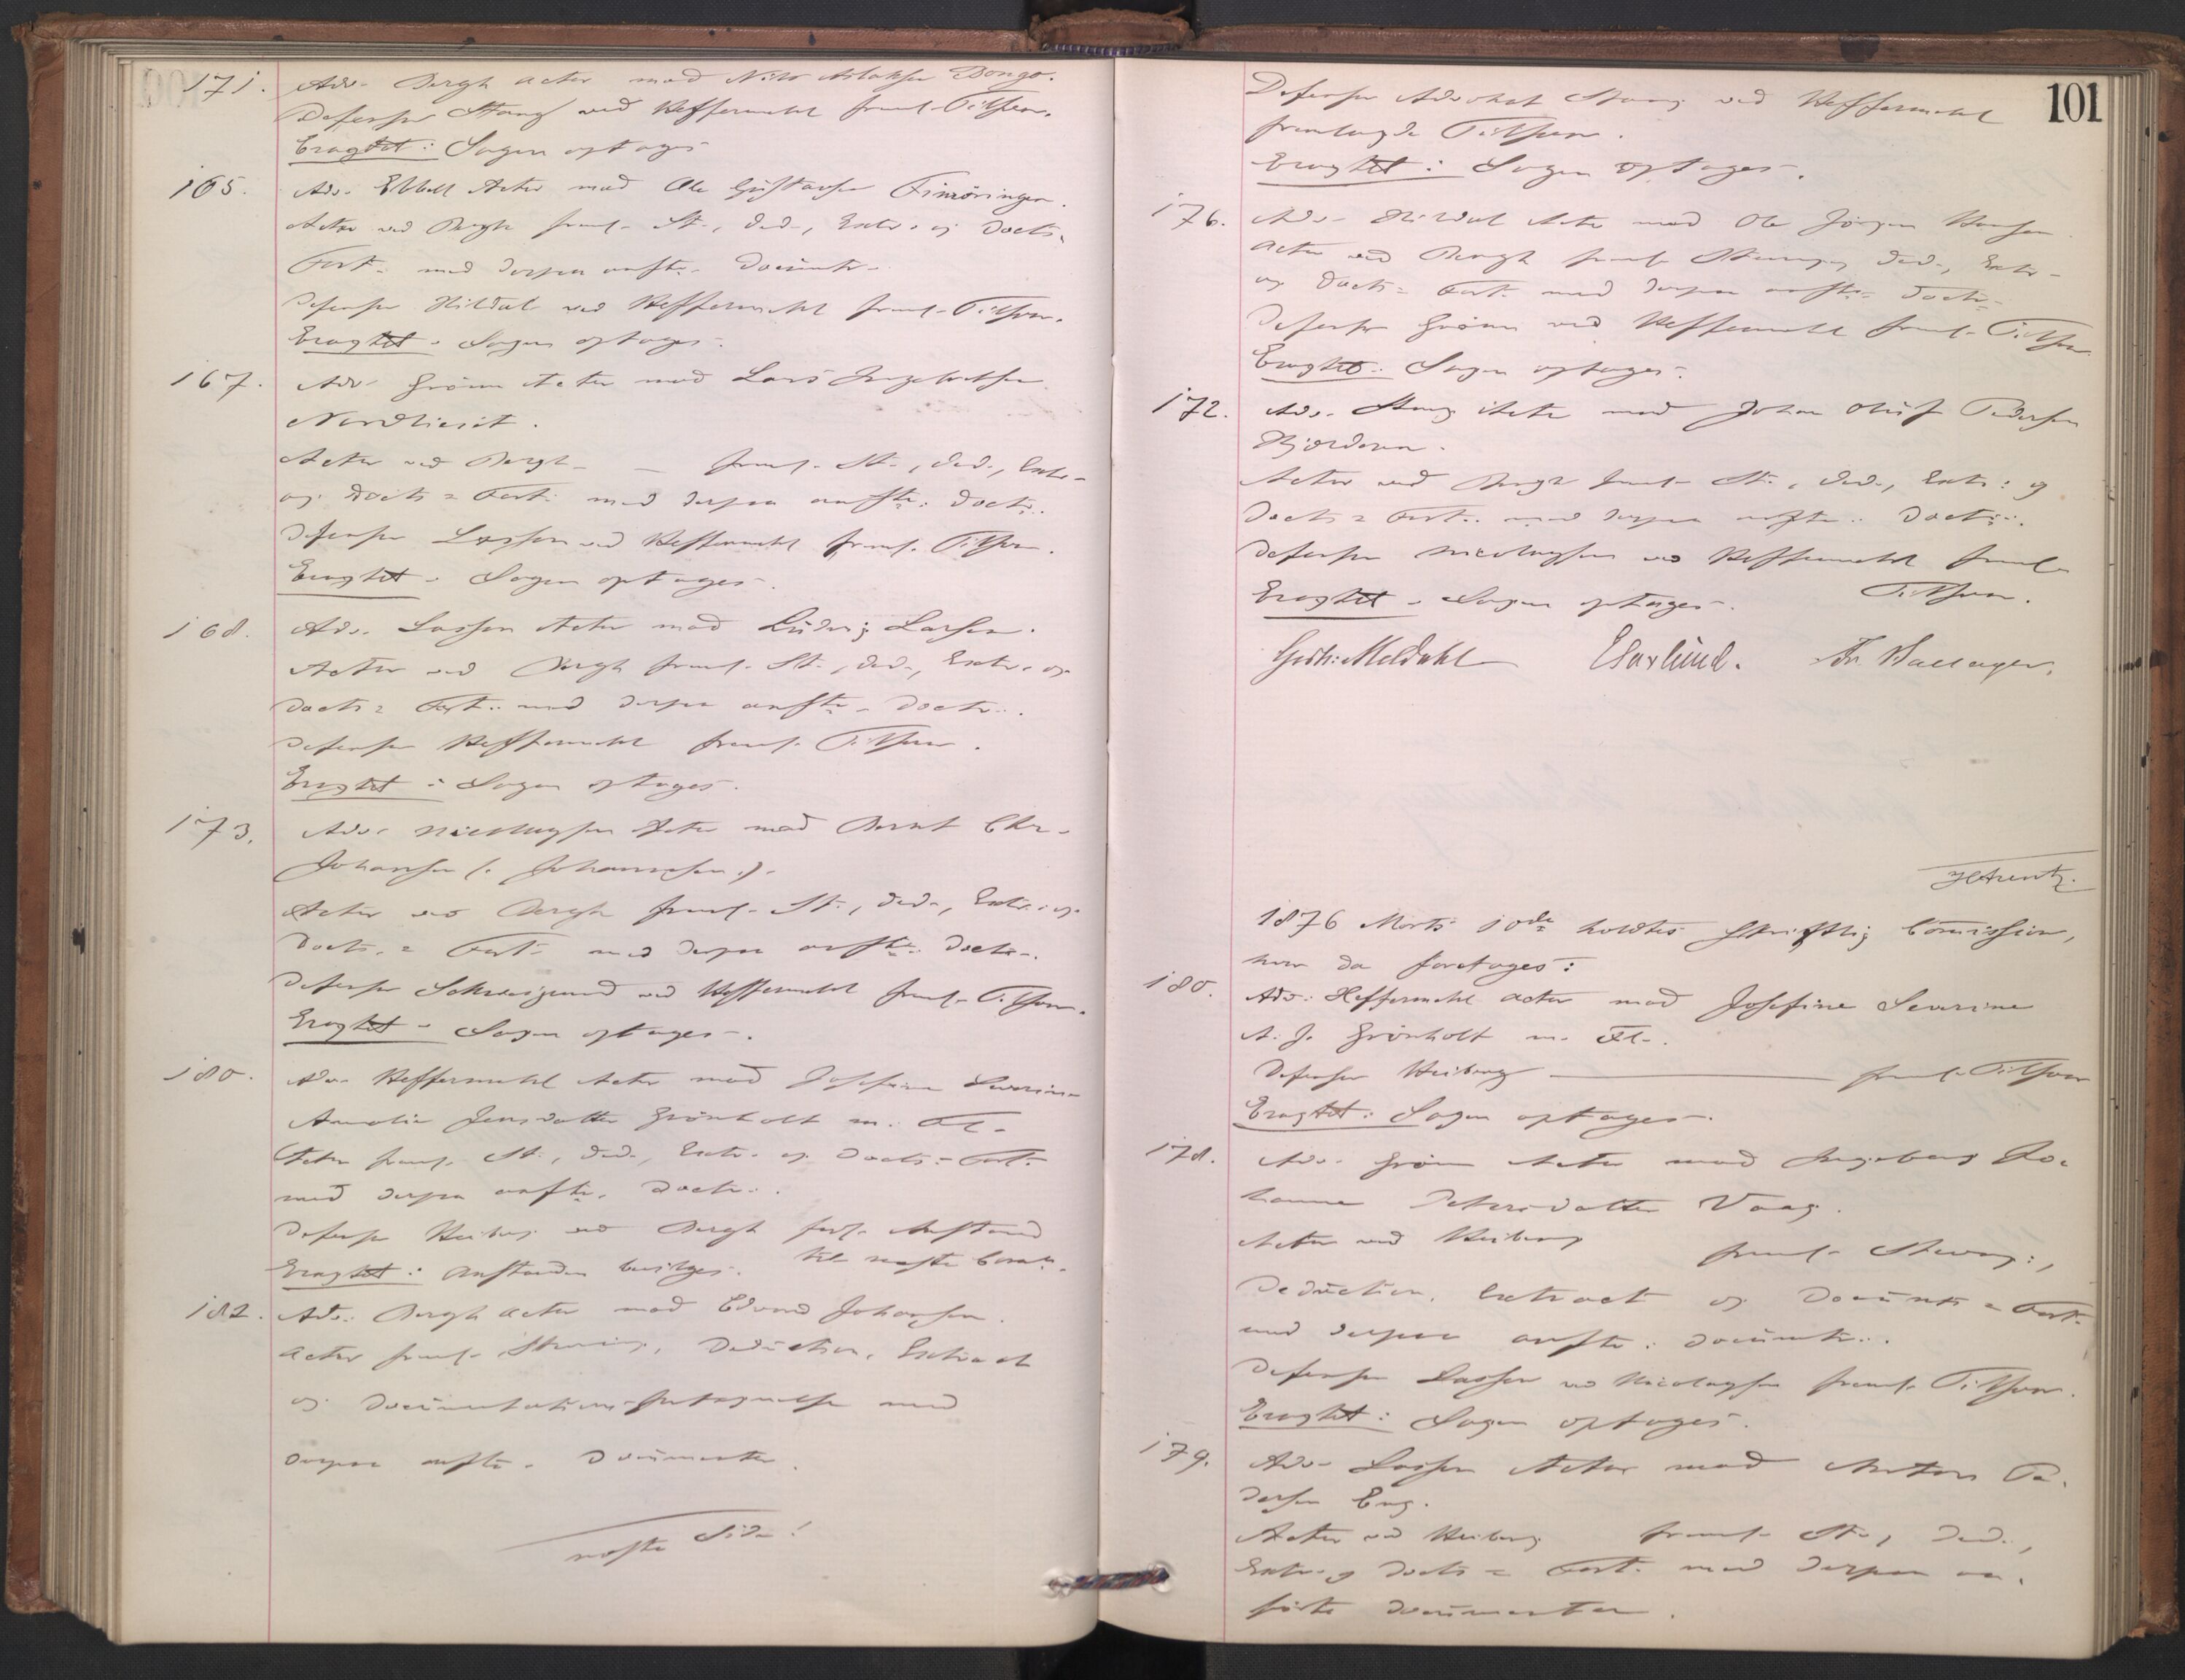 171. Adv. Bergh Actor mod Nils Aslaksen Dongo.
Defensor Stang ved Heffermehl freml. Tilsvar.
Eragtet: Sagen optages
165. Adv. Ebbell Actor mod Ole Gustavsen
Actor ved Bergh freml. St., Ded., Extr. og Docts.
Fort. med derpaa anfte. Documtr.
Defensor Hildal ved Heffermehl freml. Tilsvar.
Eragtet: Sagen optages.
167. Adv. Grönn Actor mod Lars Ingebretsen
Actor ved Bergh — freml. St., Ded., Extr.
og Docts = Fort. med derpaa anfte. Doctr.
Defensor Lassen ved Heffermehl freml. Tilsvar.
Eragtet: Sagen optages.
168. Adv. Lassen Actor mod Ludvig Larsen.
Actor ved Bergh freml. St., Ded., Extr. og
Docts = Fort. med derpaa anfte. Doctr.
Defensor Heffermehl freml. Tilsvar.
Eragtet: Sagen optages.
173. Adv. Nicolaysen Actor mod Bernt Chr.
Johansen (. Johannesen .).
Actor ved Bergh freml. St., Ded., Extr. og
Docts. = Fort. med derpaa anfte. Doctr.
Defensor Schweigaard ved Heffermehl freml. Tilsvar.
Eragtet: Sagen optages.
180. Adv. Heffermehl Actor mod Josefine Severine
Amalie Jensdatter Grönholt m. Fl.
Actor freml. St., Ded., Extr. og Docts = Fort.
med derpaa anfte. Doctr.
Defensor Heiberg ved Bergh Anstand
til næste
Eragtet: Anstanden bevilges.
182. Adv. Bergh Actor mod Edvard Johansen.
Actor freml. Stevning, Deduction, Extract
og Documentationsfortegnelse med
derpaa anfte. Documenter.
næste Side!
101
Defensor Advokat Stang ved Heffermehl
fremlagde Tilsvar.
Eragtet: Sagen optages.
176. Adv. Hildal Actor mod Ole Jörgen Hansen.
Actor ved Bergh freml. Stevning, Ded., Extr.
og Docts = Fort. med derpaa anfte. Doctr.
Defensor Grönn ved Heffermehl freml. Tilsvar.
Eragtet: Sagen optages.
172. Adv. Stang Actor mod Johan Oluf Pedersen
Actor ved Bergh freml. St., Ded., Extr: og
Docts = Fort. med derpaa anfte. Doctr.
Defensor Nicolaysen ved Heffermehl freml.
Tilsvar.
Eragtet: Sagen optages.
Meldahl
1876 Marts 10de holdtes skriftlig Commission,
hvor da foretages:
180. Adv. Heffermehl Actor mod Josefine Severine
A. J. Grönholt m. Fl.
Defensor Heiberg — freml. Tilsvar
Eragtet: Sagen optages.
178. Adv. Grönn Actor mod Ingeborg Jo-
hanne Petersdatter Vaag.
Actor ved Heiberg freml. Stevng:,
Deduction, Extract og Documts = Fort.
med derpaa anfte: Documtr.
Defensor Lassen ved Nicolaysen freml. Tilsvar.
Eragtet: Sagen optages.
179. Adv. Lassen Actor mod Anton Pe-
dersen Eng.
Actor ved Heiberg freml. St., Ded.,
Extr. og Docts = Fort. med derpaa an-
förte Documenter.